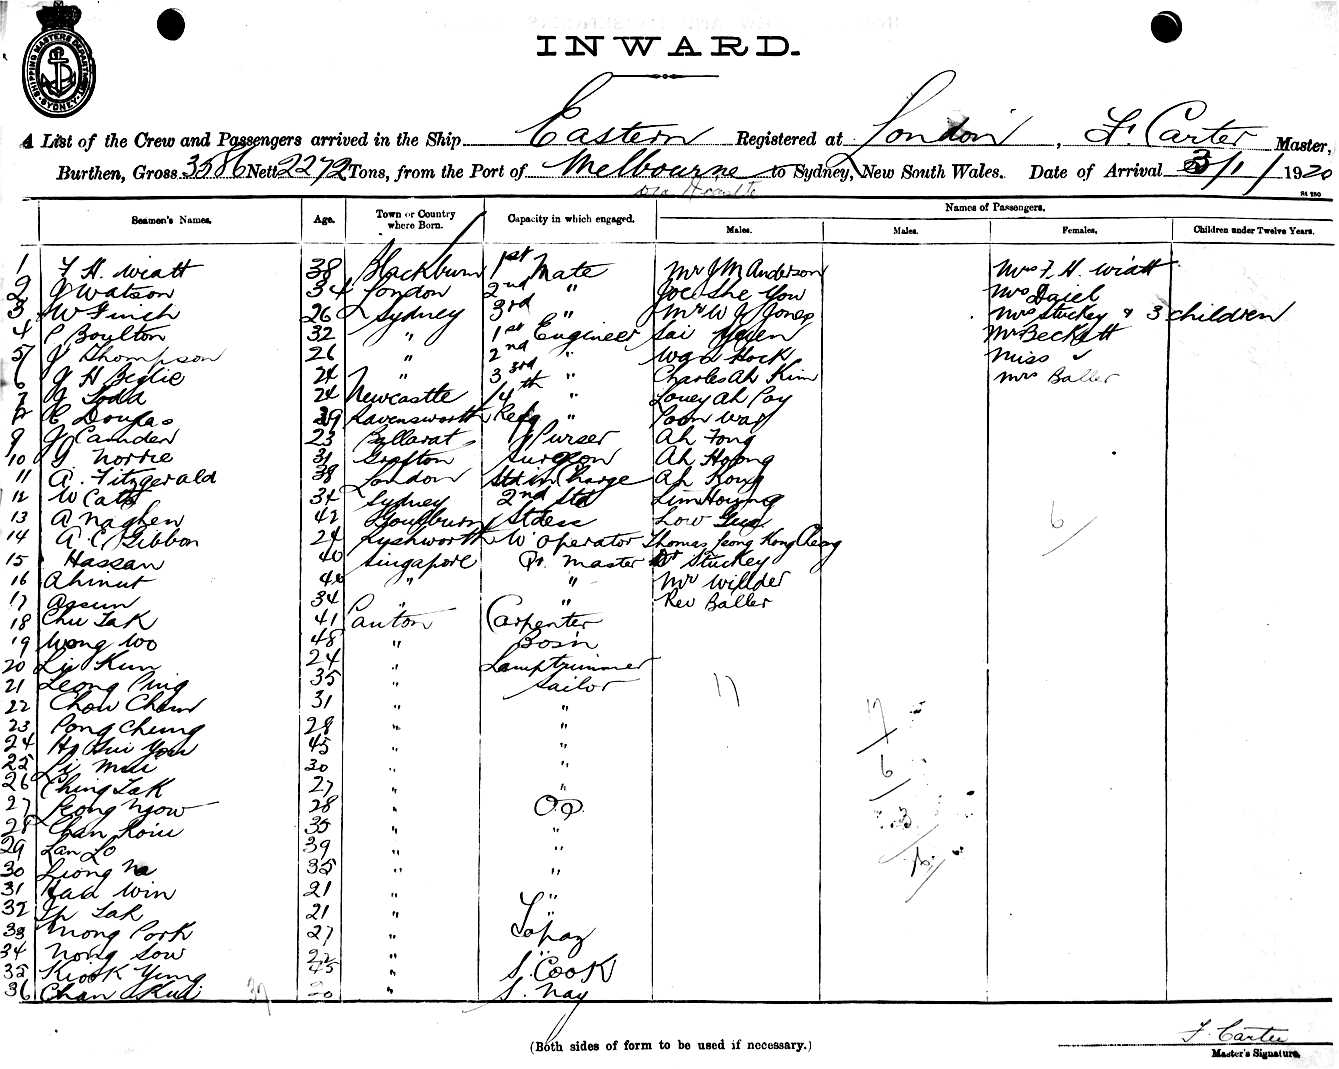 SHIPPING MASTERS DEPARTMENT SYDNEY
INWARD.
A List of the Crew and Passengers arrived in the Ship Eastern Registered at London, F. Carter Master,
Burthen, Gross 3586 Nett 2272 Tons, from the Port of Melbourne to Sydney, New South Wales. Date of Arrival 3/1/1920
Seamen's Names. Age. Town or Country where Born. Capacity in which engaged. Names of Passengers.
Males. Males. Females. Children under Twelve Years.
1 F. H. Wiatt 38 Blackburn 1st Mate Mr J M Anderson Mrs F. H. Wiatt
2 J Watson 34 London 2nd " Joe She You Mrs Daiel
3 W Finch 26 Sydney 3rd " Mr W J Jones Mrs Stuckey & 3 children
4 C Boulton 32 " 1st Engineer Sai Mrs Beckett
5 J Thompson 26 2nd " Hock Miss "
6 J H Beglie 24 " 3 3rd " Charles Ah Kim Mrs Baller
7 J Todd 24 Newcastle 4th " Louey Ah Poy
Douglas 39 Ravensworth Refg " Poon Way
9 J Camden 23 Ballarat Purser Ah Fong
10 J Norrie 31 Grafton Surgeon Ah Hoong
11 A. Fitzgerald 38 London Std in Charge Ah Kong
12 W Cato 34 Sydney 2nd Std Lim Houng
13 A Naghen 42 Goulburn Stdess Low
14 A. C. Gibbon 24 Rushworth W Operator Thomas Jeong Kong Cheong
15 Hassan 40 Singapore Qr. Master Dr Stuckey
16 Ahinut 40 " " Mr Willder
17 Assun 34 " " Rev Baller
18 Chu Tak 41 Canton Carpenter
19 Wong Woo 48 " Bos'n
20 Kun 24 " Lamptrimmer
21 Leong Ping 35 " Sailor
22 Chow Chow 31 " "
23 Pong Cheung 28 " "
24 Ho Sui You 45 " "
25 Li Mui 30 " "
26 Ching Tak 27 " "
27 Leong Ngow 28 " O.S.
28 Chan Koiu 35 " "
29 Lan Lo 39 " "
30 Leong Na 35 " "
31 Win 21 " "
32 Ip Tak 21 " "
33 Mong Pork 27 " Topaz
34 Nong Sow 22 " "
35 Kiook Yung 45 " S. Cook
36 Chan Kui 20 " S. Nay
17
6
17
6
3
37
(Both sides of form to be used if necessary.)
F. Carter
Master's Signature.